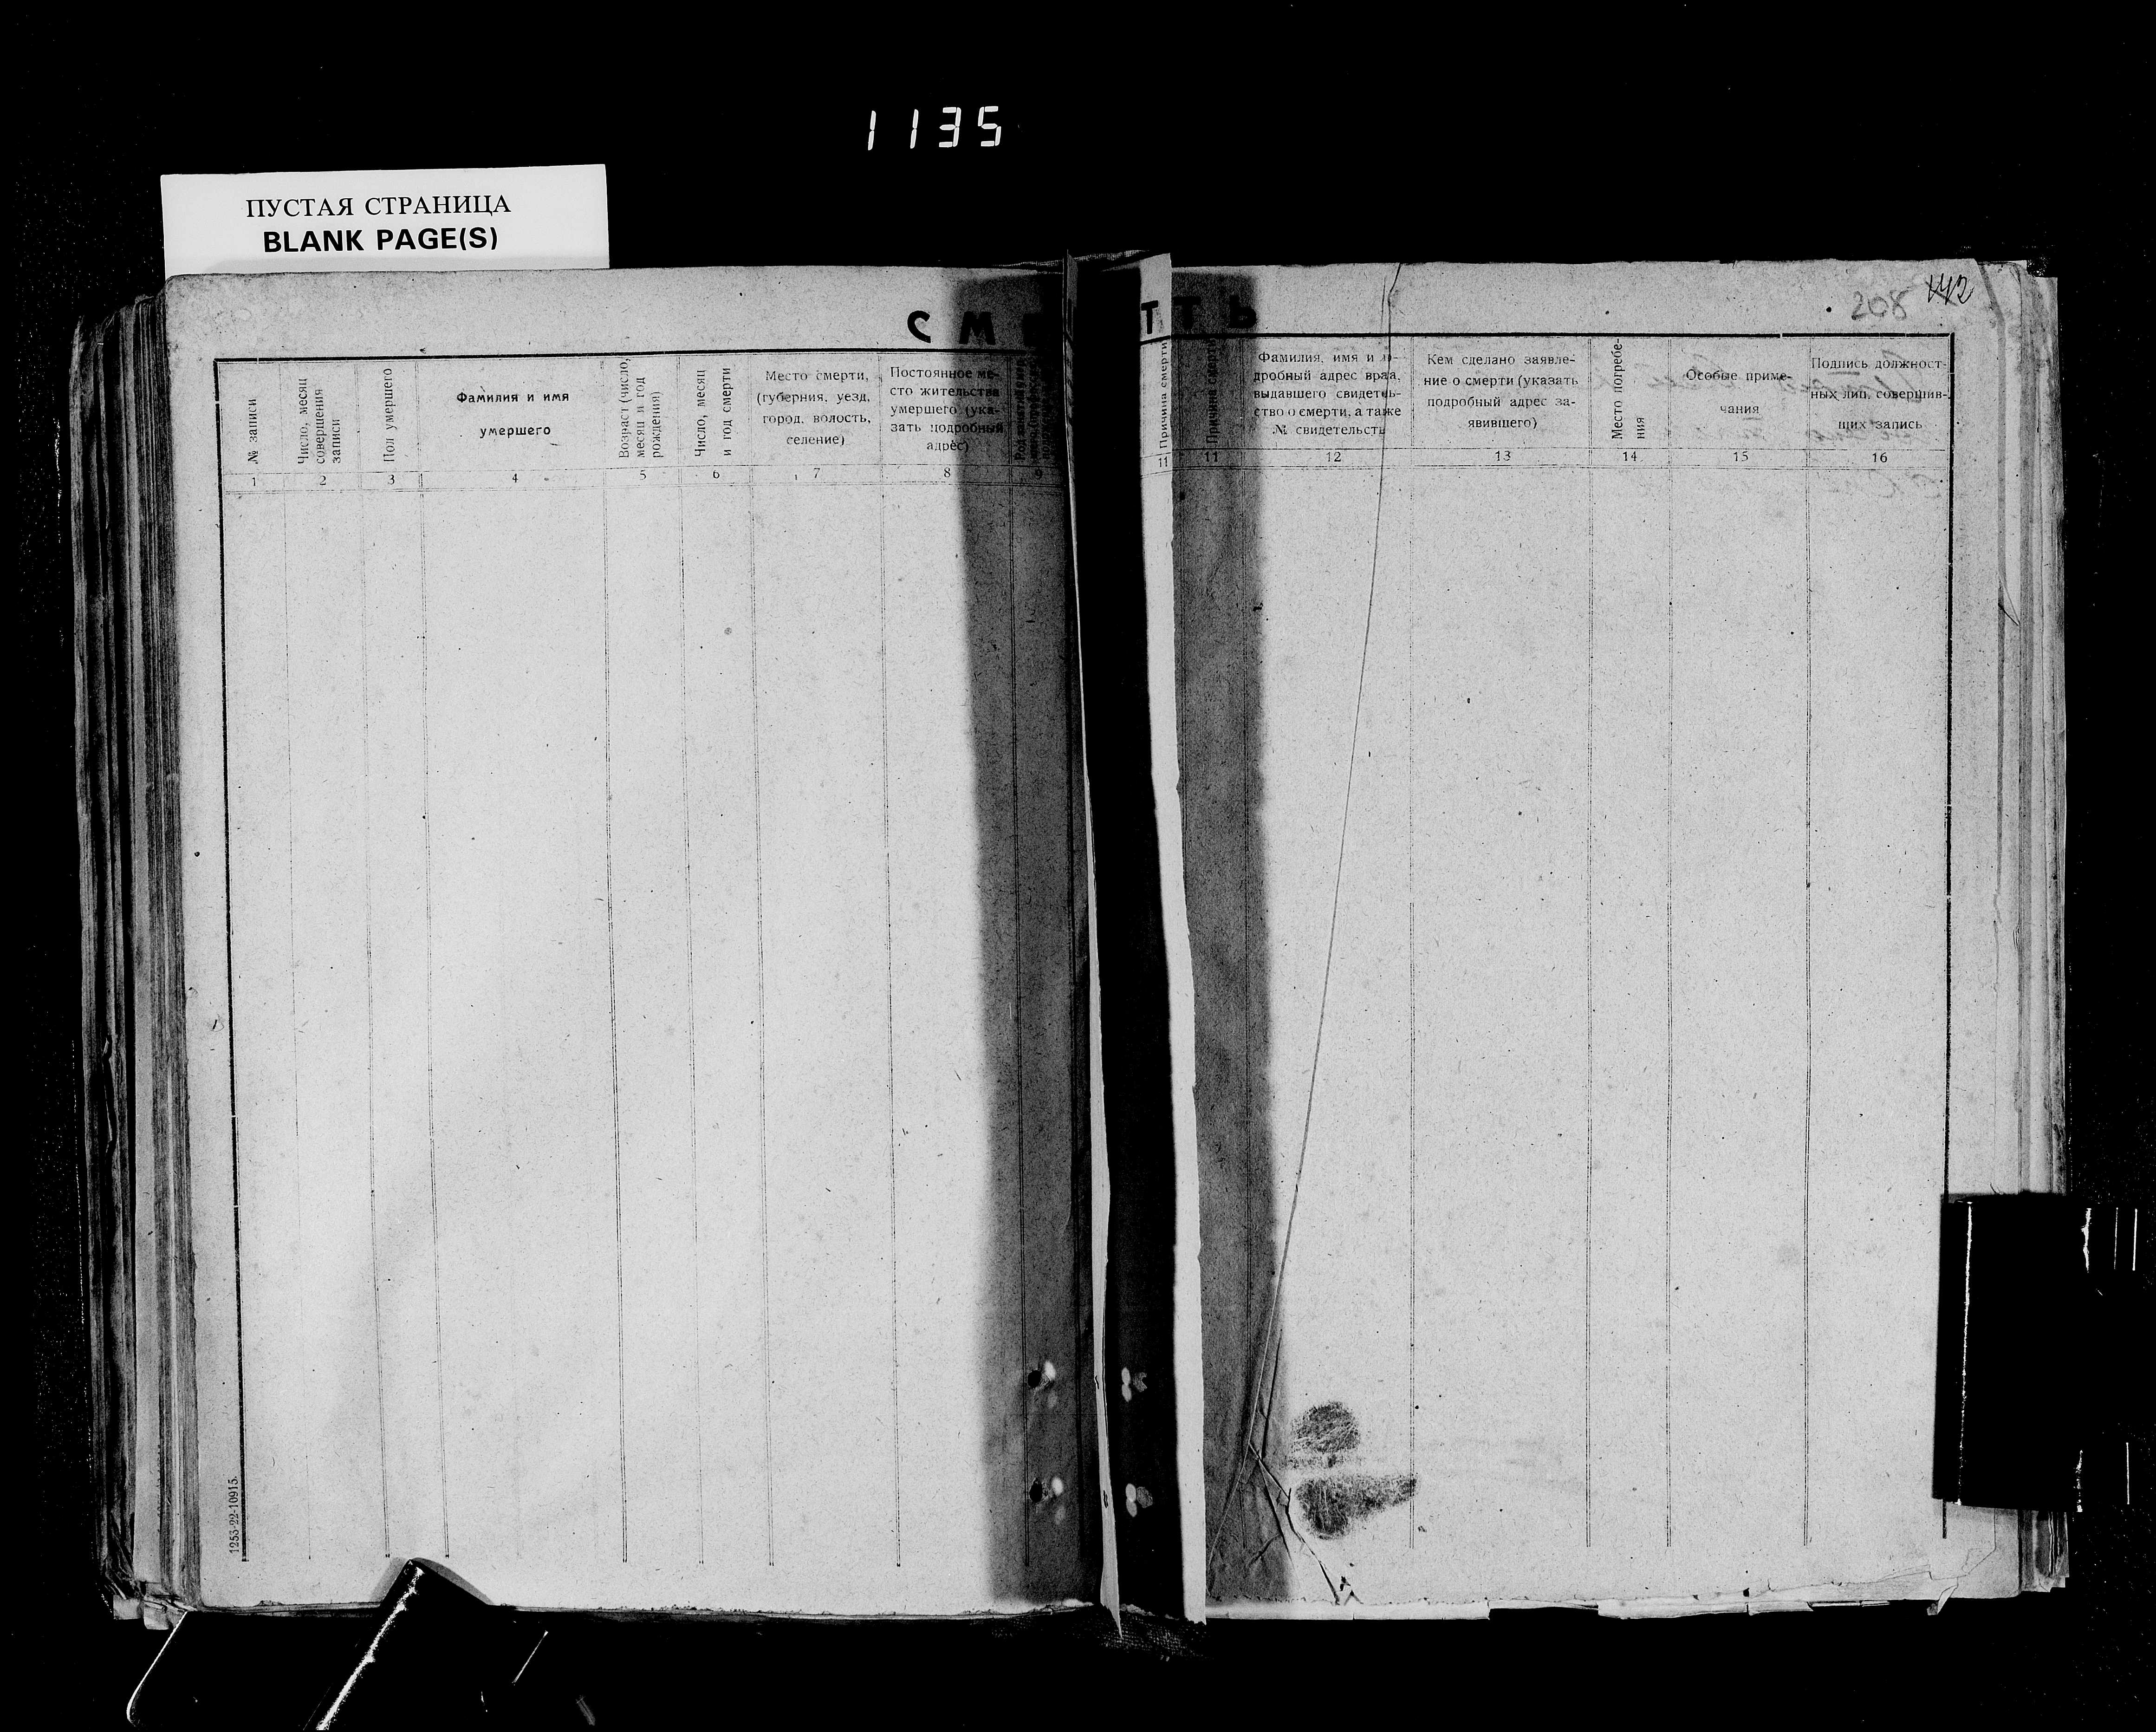 1135
ПУСТАЯ СТРАНИЦА
BLANK PAGE(S)
208 142
СМ
Т ТЬ
№ записи
Число, месяц
совершения
записи
Пол умершего
Фамилия и имя
умершего
Возраст (число,
месяц и год
рождения)
Число, месяц
и год смерти
Место смерти,
(губерния, уезд,
город, волость,
селение)
Постоянное ме-
сто жительства
умершего (ука-
зать подробный
адрес)
Причина смерти
Причина смерти
Фамилия, имя и
дробный адрес
выдавшего свидетель-
ство о смерти, а также
№ свидетельств
Кем сделано заявле-
ние о смерти (указать
подробный адрес за-
явившего)
Место погребе-
ния
Особые приме-
чания
Подпись должност-
ных лиц, совершив-
щих запись
1 2 3 4 5 6 7 8 9 11 11 12 13 14 15 16
1253-22-10915.